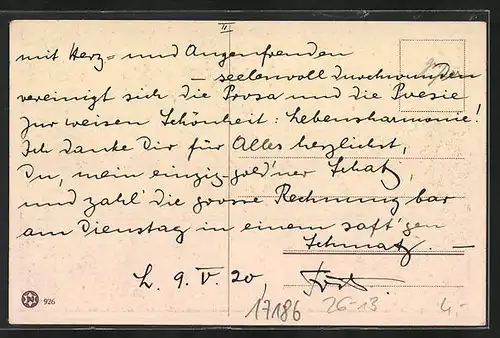 II
mit Herz- und Augenfreuden
— seelenvoll durchwunden
vereinigt sich die Prosa und die Poesie
zur weisen Schönheit: Lebensharmonie!
Ich danke Dir für Alles herzlichst,
Du, mein einzig-gold'ner Schatz,
und zahl' die grosse Rechnung bar
am Dienstag in einem saft'gen
Schmatz. —
L. 9. V. 20,
926
17186 26-13 4,-